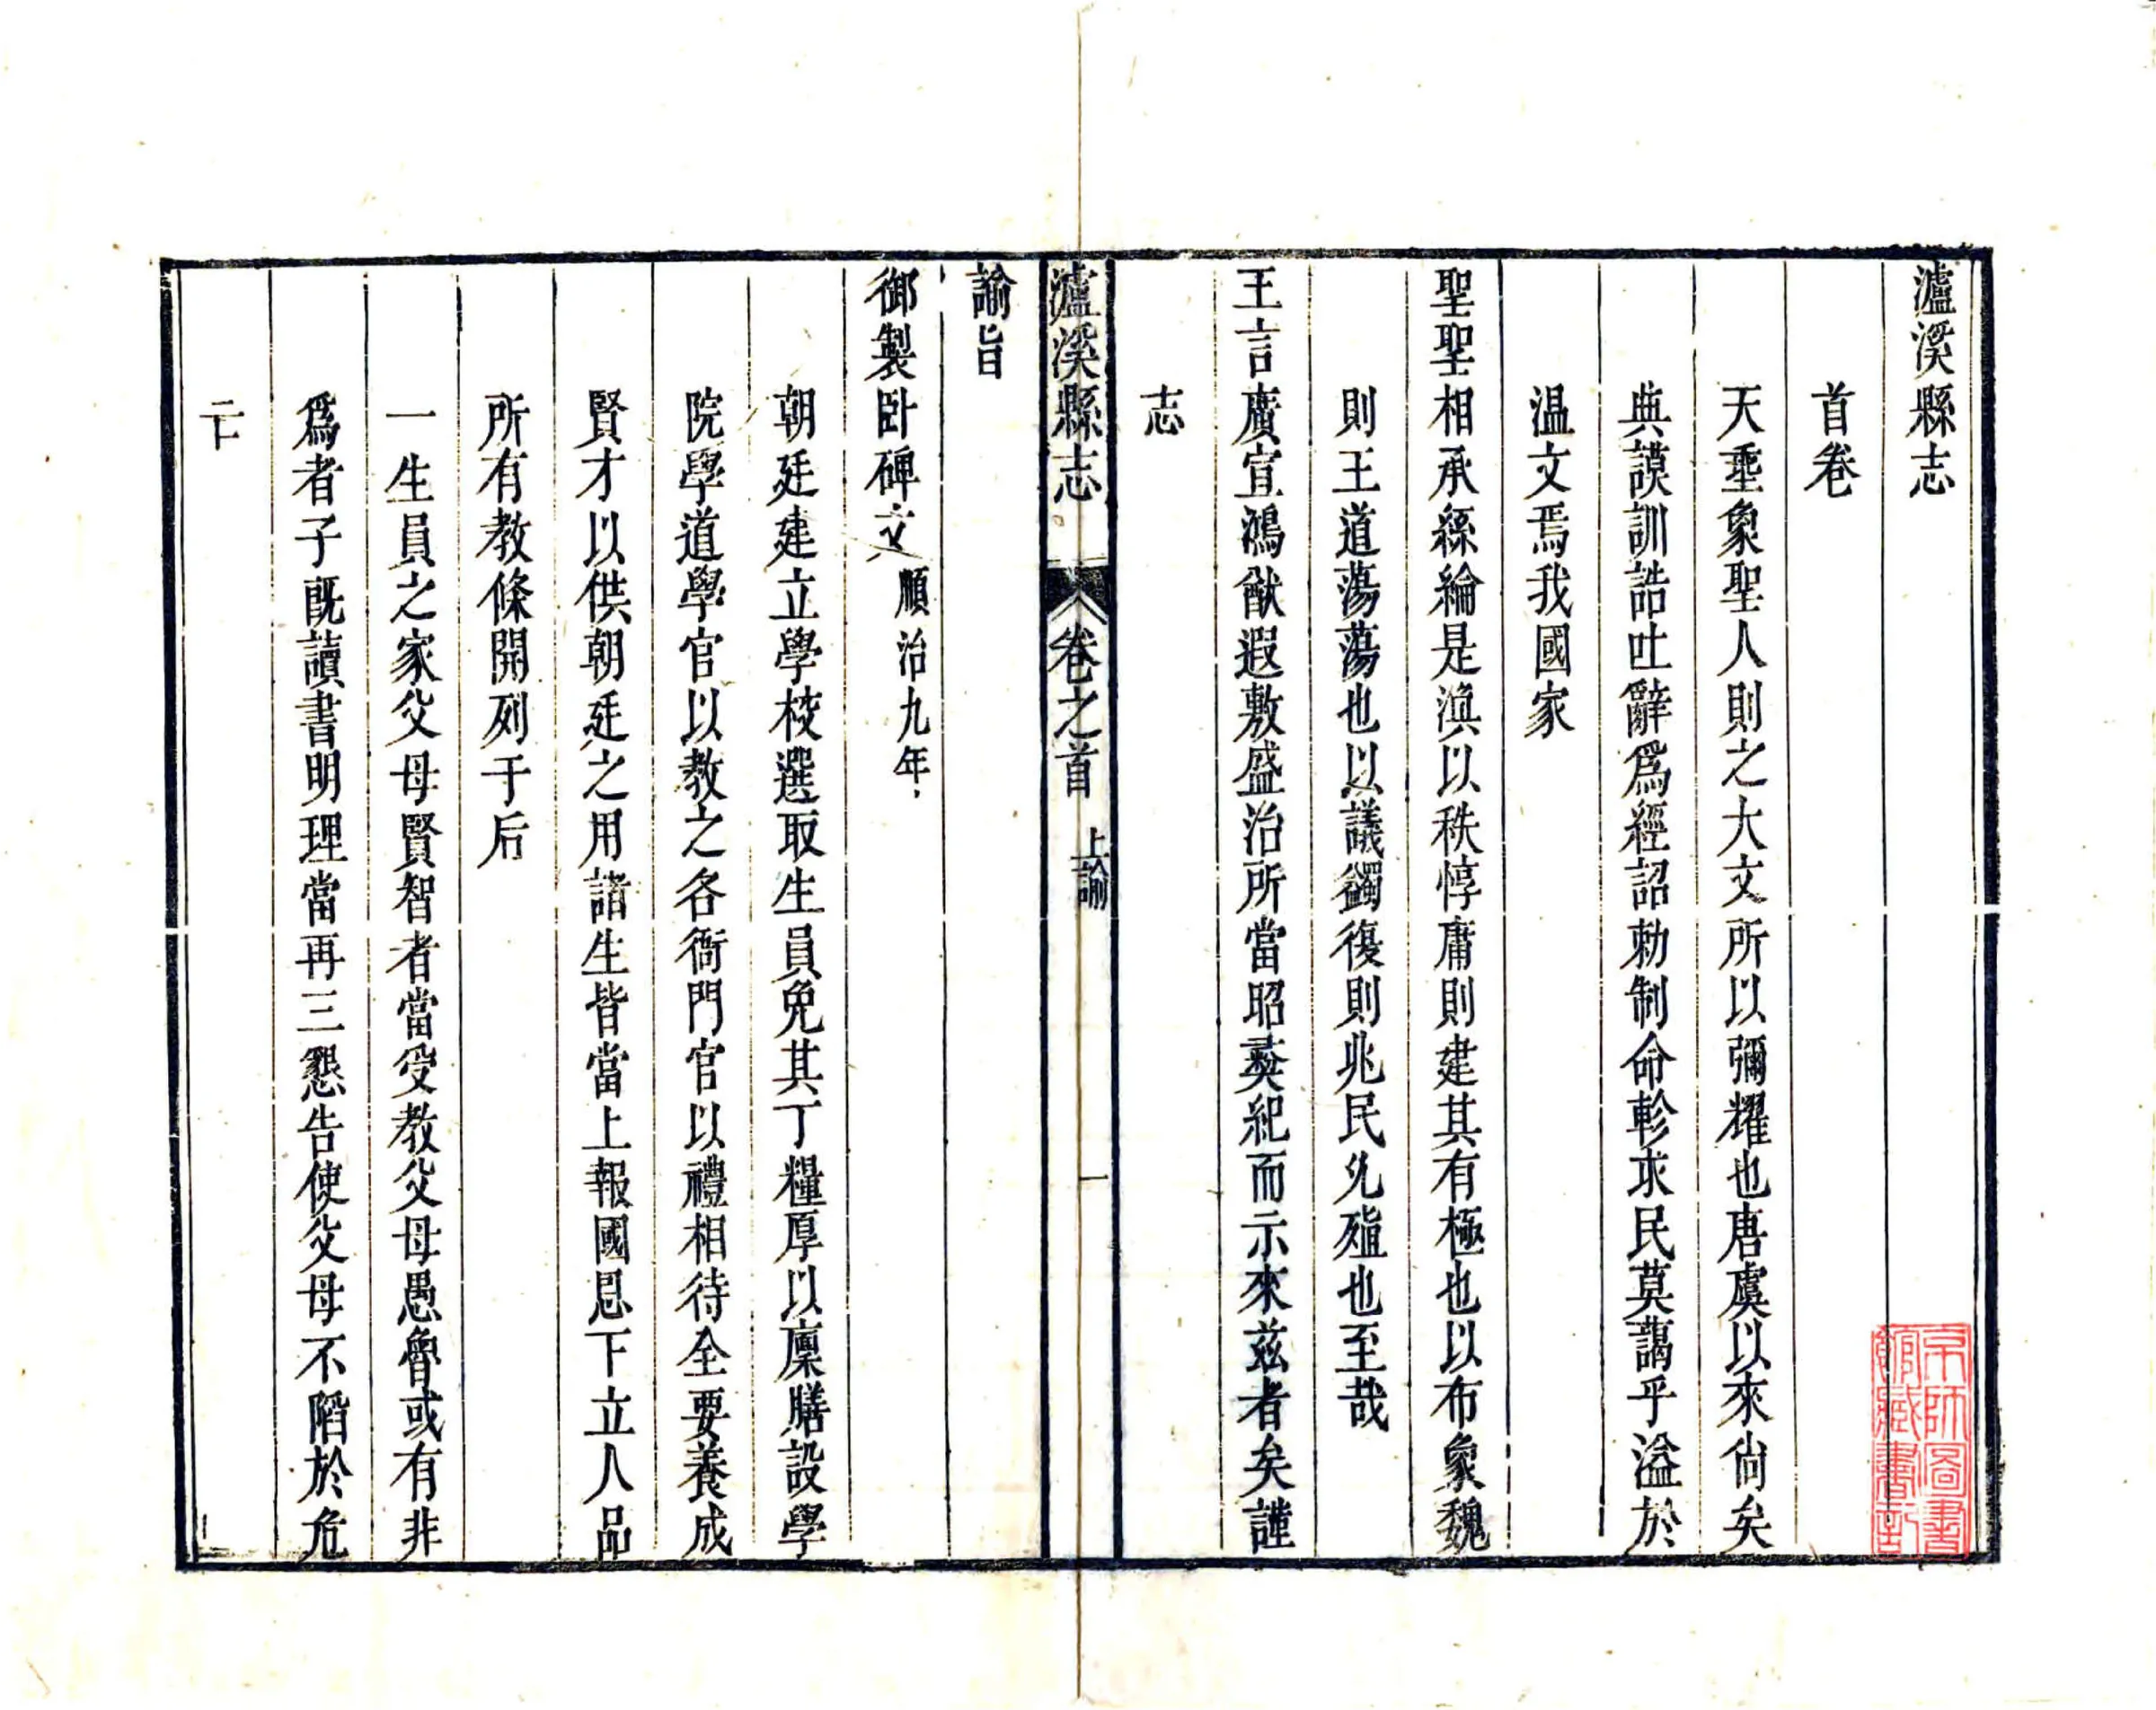 瀘溪縣志
首卷
天垂象聖人則之大文所以彌耀也唐虞以來尙矣
典謨訓誥吐辭爲經詔勅制命軫求民莫藹乎溢於
温文焉我國家
聖聖相承綜綸是滇以秩惇庸則建其有極也以布象魏
則王道蕩蕩也以議蠲復則兆民允殖也至哉
王言廣宣鴻猷遐敷盛治所當昭葵紀而示來兹者矣謹
志
瀘溪縣志 卷之首 上諭 一
諭旨
御製卧碑文 順治九年
朝廷建立學校選取生員免其丁糧厚以廪膳設學
院學道學官以教之各衙門官以禮相待全要養成
賢才以供朝廷之用諸生皆當上報國恩下立人品
所有教條開列于后
一生員之家父母賢智者當受教父母愚魯或有非
爲者子旣讀書明理當再三懇告使父母不陷於危
亡
京師圖書
館藏書記